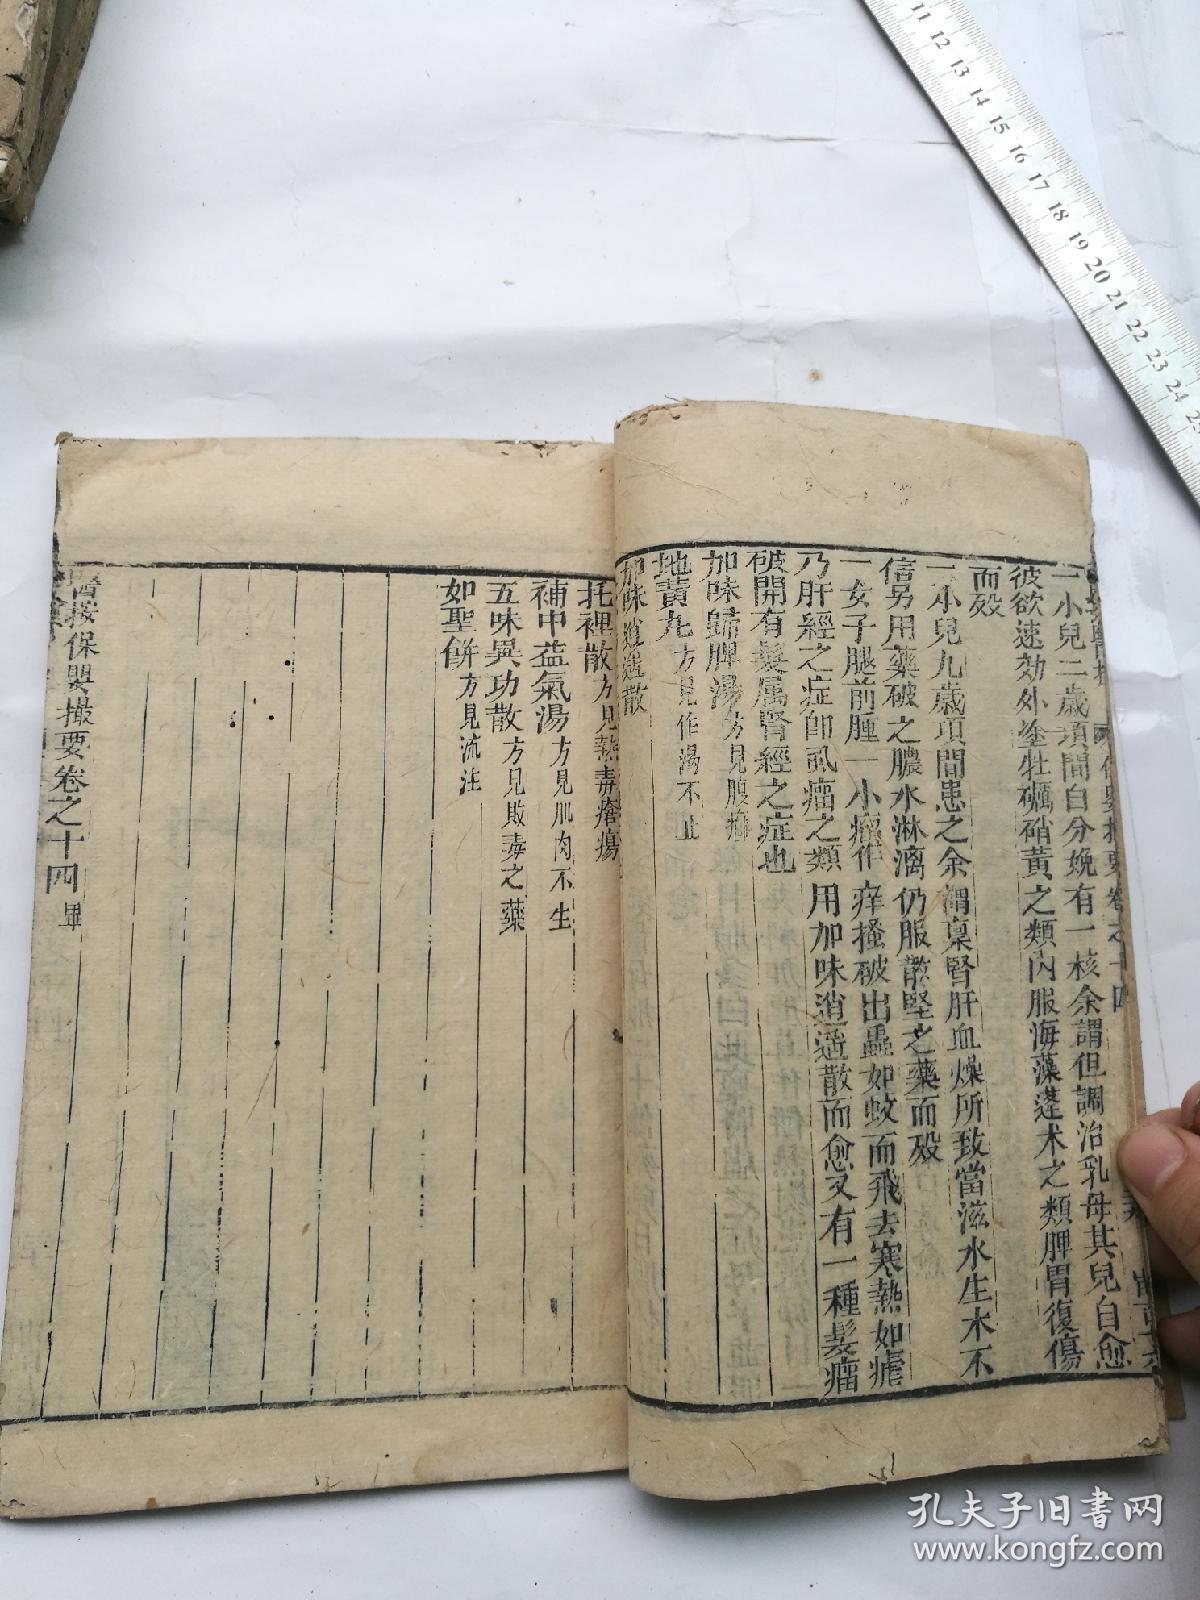 一小兒二歲項間自分娩有一核余謂但調治乳母其兒自愈
彼欲速効外塗牡礪硝黃之類内服海藻蓬术之類脾胃復傷
而殁
一小兒九歲項間患之余謂稟腎肝血燥所致當滋水生木不
信另用藥破之膿水淋漓仍服散堅之藥而殁
一女子腿前腫一小瘤作痒搔破出蟲如蚊而飛去寒熱如瘧
乃肝經之症即虱瘤之類用加味逍遥散而愈又有一種髮瘤
破開有髮屬腎經之症也
加味歸脾湯方見腹癰
地黃丸方見作瀉不止
加味逍遥散
托裡散方見熱毒瘡瘍
補中益氣湯方見肌肉不生
五味異功散方見敗毒之藥
如聖餅方見流注
醫按保嬰撮要卷之十四畢
11 12 13 14 15 16 17 18 19 20 21 22 23 24
孔夫子旧书网
www.kongfz.com